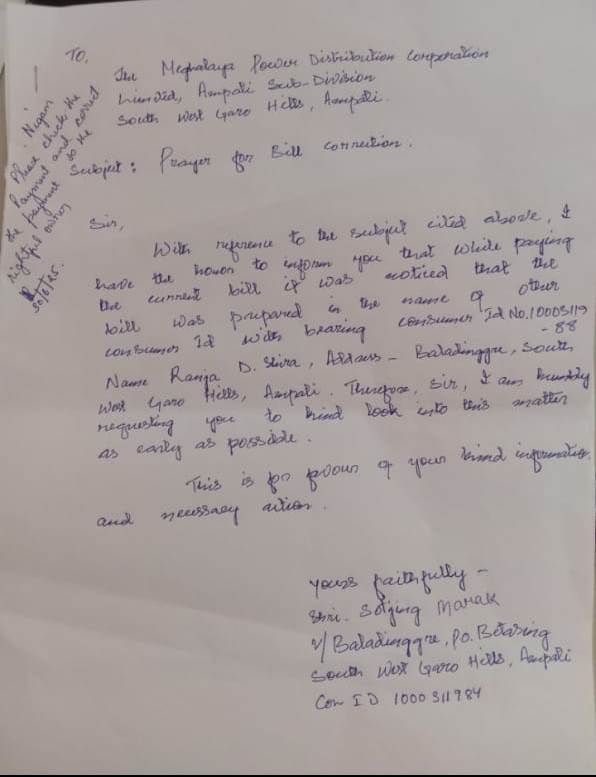 To,
The Meghalaya Power Distribution Corporation
Limited, Ampati Sub-Division
South West Garo Hills, Ampati.
Nigam
Please check the
Payment and correct
the payment to the
rightful owner
30/6/25.
Subject: Prayer for Bill correction.
Sir,
With reference to the subject cited above, I
have the honor to inform you that while paying
the current bill it was noticed that the
bill was prepared in the name of other
consumer Id with bearing consumer Id No. 10003119
-88
Name Ranja D. Shira, Address - Baladinggre, South
West Garo Hills, Ampati. Therefore, Sir, I am humbly
requesting you to kind look into this matter
as early as possible.
This is for favour of your kind information
and necessary action.
Yours faithfully -
Shri. Soljing Marak
v/ Baladinggre, Po. Betasing
South West Garo Hills, Ampati
Con ID 1000311984